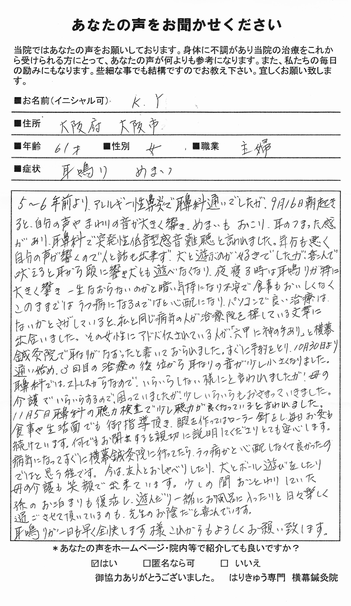 あなたの声をお聞かせください
当院ではあなたの声をお願いしております。身体に不調があり当院の治療をこれか
ら受けられる方にとって、あなたの声が何よりも参考になります。また、私たちの毎日
の励みにもなります。些細な事でも結構ですのでお教え下さい。宜しくお願い致しま
す。
■お名前(イニシャル可) K.Y
■住所 大阪府 大阪市
■年齢 61才 ■性別 女 ■職業 主婦
■症状 耳鳴り めまい
5～6年前より、アレルギー性鼻炎で耳鼻科通いでしたが、9月16日朝起き
ると、自分の声やまわりの音が大きく響き、めまいもおこり、耳のつまった感
があり、耳鼻科で突発性低音型感音難聴と言われました。
自分の声が響くので人と話も出来ず、犬と遊ぶのが好きでしたが、
吠えると耳から頭に響き犬とも遊べなくなり、夜寝る時は耳鳴りが特に
大きく響き 一生なおらないのかと暗い気持になり
このままではうつ病になるのではと心配になり、パソコンで良い治療は
ないかとさがしていると、私と同じ病気の人が治療院を探している文章に
出会いました。その女性にアドバイスされている人が、
鍼灸院で耳鳴りがなおったと書いておられました。すぐに予約をとり、10月30日より
通い始め、3回目の治療の後位から耳なりの音が少し小さくなりました。
耳鼻科では、ストレスからなので、いらいらしない様にと言われましたが、母の
介護でいらいらするので困っていましたが、少しいらいらもおさまっていきました。
11月5日耳鼻科の聴力検査で少し聴力が良くなっていると言われました。
食事や生活面でも御指導頂き、
続けています。何でもお聞きすると親切に説明してくださりとても安心します。
病気になってすぐに横幕鍼灸院に行ってたら、うつ病かと心配しなくて良かったの
ではと思う程です。今は、友人とおしゃべりしたり、犬とボール遊びをしたり
母の介護も笑顔で出来ています。少しの間おことわりしていた
孫のお泊まりも復活し、遊んだり一緒にお風呂に入ったりと日々楽しく
過ごさせて頂いているのも、先生のお陰だと喜んでいます。
耳鳴りが一日も早く全快します様、これからもよろしくお願い致します。
*あなたの声をホームページ・院内等で紹介しても良いですか?
☑はい □匿名なら可 □いいえ
御協力ありがとうございました。 はりきゅう専門 横幕鍼灸院